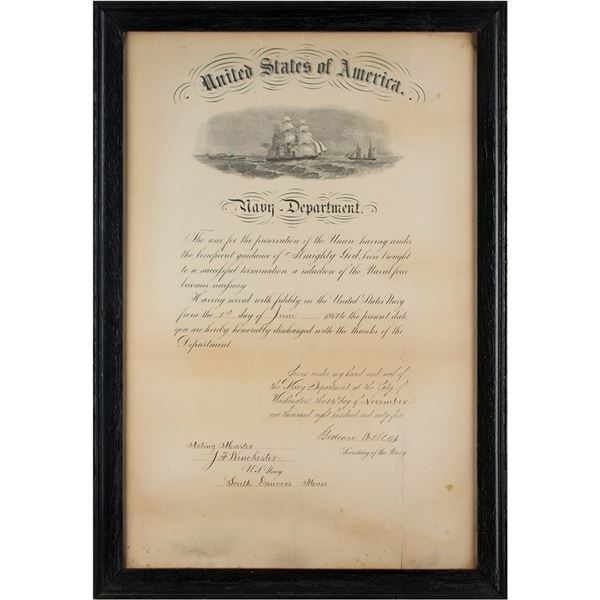 United States of America.
Navy Department.
The war for the preservation of the Union having, under
the beneficent guidance of Almighty God, been brought
to a successful termination a reduction of the Naval force
becomes necessary
Having served with fidelity in the United States Navy
from the 1st day of June 186 to the present date
you are hereby honorably discharged with the thanks of the
Department
Given under my hand and seal of
the Navy Department, at the City of
Washington, this day of November
one thousand eight hundred and sixty five.
Gideon Welles
Secretary of the Navy
Acting Master
J F Winchester
U.S. Navy
South Danvers Mass